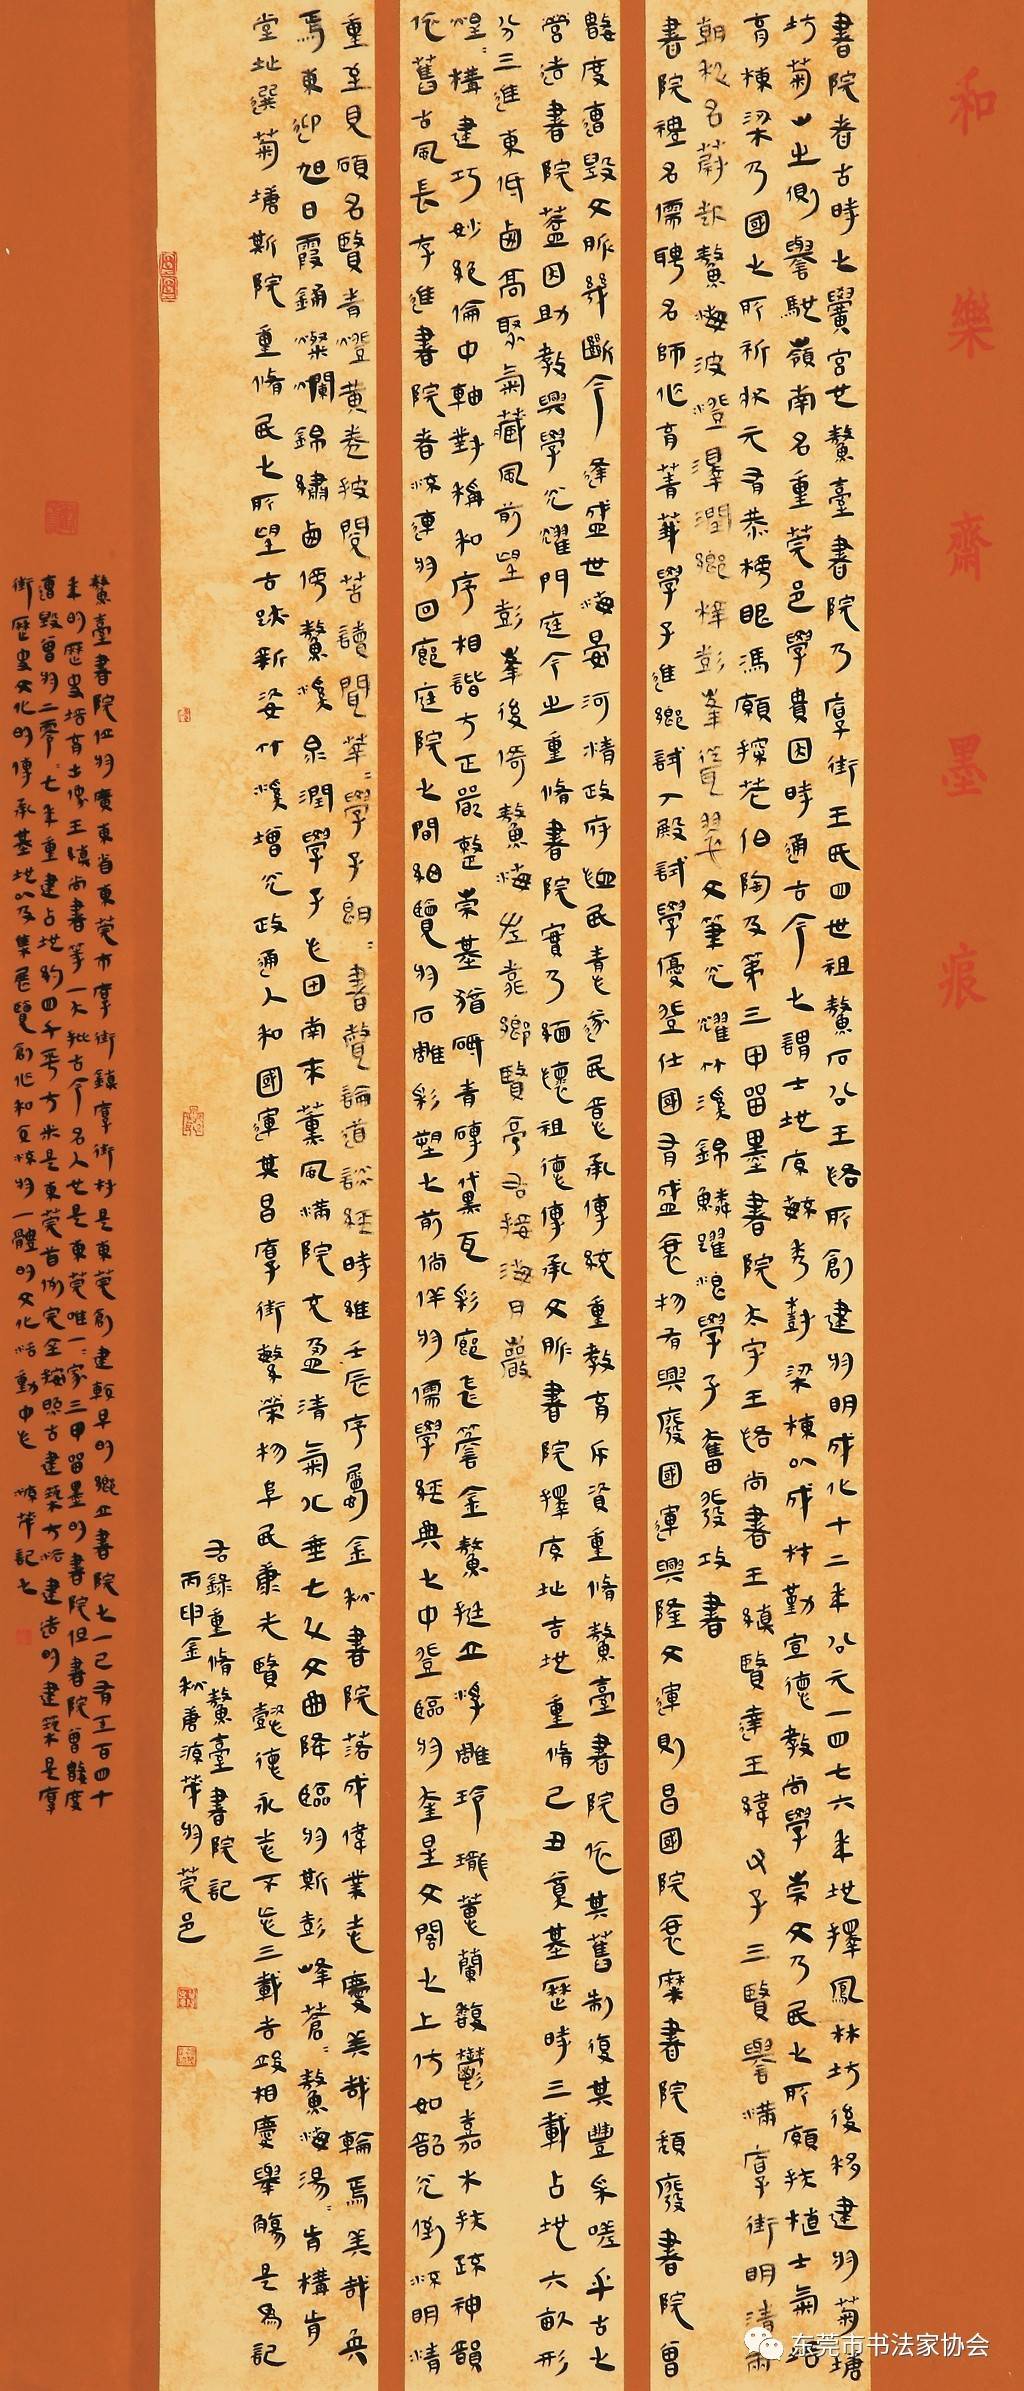 和樂齋墨痕
書院者古時之黌宮也鰲臺書院乃厚街王氏四世祖鰲石公王恪所創建於明成化十二年公元一四七六年地擇鳳林坊後移建於菊塘
坊菊山之側譽馳嶺南名重莞邑學貴因時通古今之謂士地原毓秀對梁棟以成材勤宣德教尚學崇文乃民之所願扶植士氣培
育棟梁乃國之所祈狀元有恭榜眼馮願探花伯陶及第三甲留墨書院太守王恪尚書王縝賢達王緯父子三賢譽滿厚街明清兩
朝秋名蔚起鰲海波燈澤潤鄉梓彭峯聳翠文筆光耀竹溪錦鱗躍浪學子奮發攻書
書院禮名儒聘名師作育菁莪學子進鄉試入殿試學優登仕國有盛衰物有興廢國運興隆文運則昌國院衰糜書院頹廢書院曾
數度遭毀文脈幾斷今逢盛世海晏河清政府恤民青之遂民意承傳統重教育斥資重修鰲臺書院依其舊制復其豐采嗟乎古之
營造書院蓋因助教興學光耀門庭今之重修書院實乃緬懷祖德傳承文脈書院擇原址吉地重修己丑奠基歷時三載占地六畝形
分三進東低西高聚氣藏風前望彭峯後倚鰲海左靠鄉賢亭右接海月巖
煌構建巧妙絕倫中軸對稱和序相諧方正嚴整崇基猶硎青磚黛瓦彩廊飛簷金鰲挺立浮雕玲瓏蕙蘭馥鬱嘉木扶疏神韻
依舊古風長存進書院者流連於回廊庭院之間細覽於石雕彩塑之前徜徉於儒學經典之中登臨於奎星文閣之上仿如韶光倒流明精
重至見碩名賢青燈黃卷披閱苦讀聞莘莘學子朗朗書聲論道談經時維壬辰序屬金秋書院落成偉業志慶美哉輪焉美哉奐
焉東迎旭日霞鋪燦爛錦繡西傍鰲溪泉潤學子心田南來薰風滿院充盈清氣北垂七斗文曲降臨於斯彭峰蒼蒼鰲海湯湯肯構肯
堂址選菊塘斯院重修民之所望古跡新姿竹溪增光政通人和國運其昌厚街繁榮物阜民康先賢懿德永志不忘三載告竣相慶舉觴是為記
右錄重修鰲臺書院記
丙申金秋唐源華於莞邑
鰲臺書院位於廣東省東莞市厚街鎮厚街村是東莞創建較早的鄉立書院之一已有五百四十
年的歷史培育出像王縝尚書等一大批古今名人也是東莞唯一一家三甲留墨的書院但書院曾數度
遭毀曾於二零零七年重建占地約四千平方米是東莞首個完全按照古建築方法建造的建築是厚
街歷史文化的傳承基地以及集展覽創作和交流於一體的文化活動中心 源華記之
东莞市书法家协会